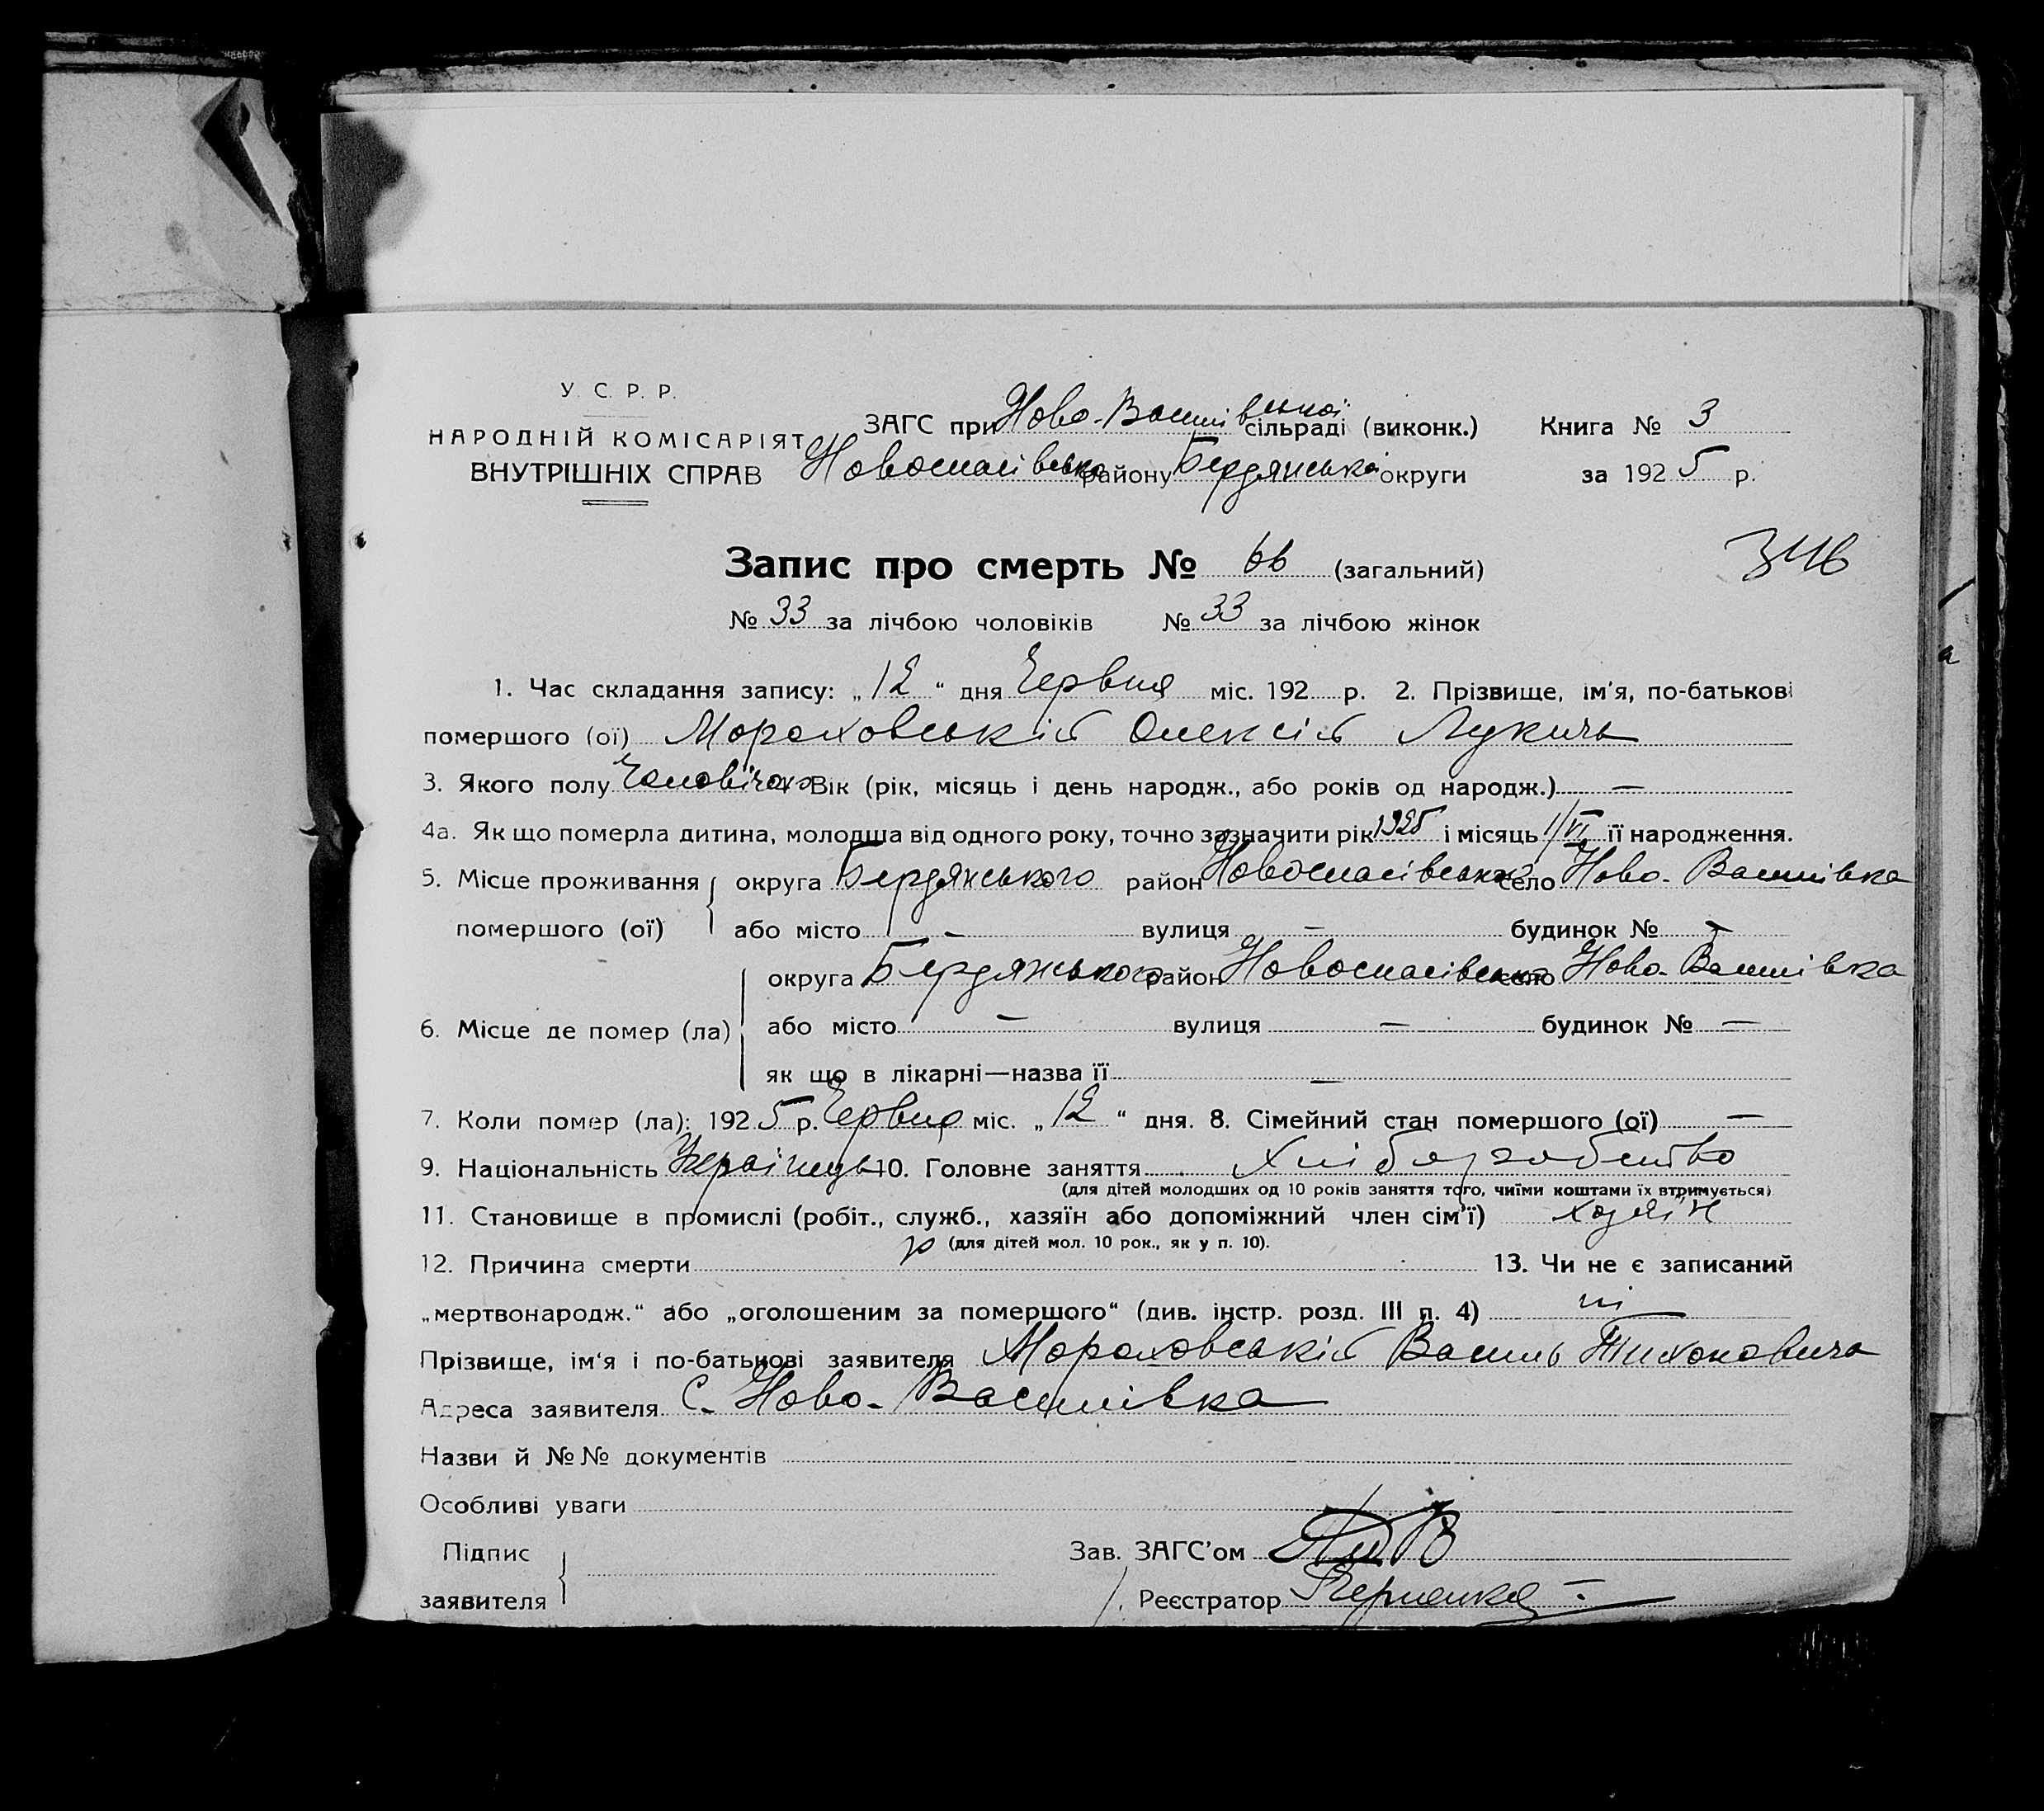 У. С. Р. Р.
НАРОДНІЙ КОМІСАРІЯТ
ВНУТРІШНІХ СПРАВ
ЗАГС при Ново-Василівської сільраді (виконк.)
Новоспасівсько району Бердянської округи
Книга № 3
за 1925 р.
Запис про смерть № 66 (загальний)
346
№ 33 за лічбою чоловіків № 33 за лічбою жінок
1. Час складання запису: „12“ дня Червня міс. 192 р. 2. Прізвище, ім'я, по-батькові
помершого (ої) Мораховській Олексій Лукичь
3. Якого полу Чоловічого Вік (рік, місяць і день народж., або років од народж.) —
4а. Як що померла дитина, молодша від одного року, точно зазначити рік 1925 і місяць 1/VI її народження.
5. Місце проживання округа Бердянського район Новоспасівсько село Ново-Василівка
помершого (ої) або місто — вулиця — будинок № —
округа Бердянського район Новоспасівсько село Ново-Василівка
6. Місце де помер (ла) або місто — вулиця — будинок № —
як що в лікарні—назва її —
7. Коли помер (ла): 1925 р. Червня міс. „12“ дня. 8. Сімейний стан помершого (ої) —
9. Національність Українець 10. Головне заняття Хліборобство
(для дітей молодших од 10 років заняття того, чиїми коштами їх втримується)
11. Становище в промислі (робіт., служб., хазяїн або допоміжний член сім'ї) хазяїн
(для дітей мол. 10 рок., як у п. 10).
12. Причина смерти 13. Чи не є записаний
„мертвонародж.“ або „оголошеним за помершого“ (див. інстр. розд. III п. 4) ні
Прізвище, ім'я і по-батькові заявителя Мораховській Василь Тихонович
Адреса заявителя С. Ново-Василівка
Назви й №№ документів
Особливі уваги
Підпис
заявителя
Зав. ЗАГС'ом
Реєстратор